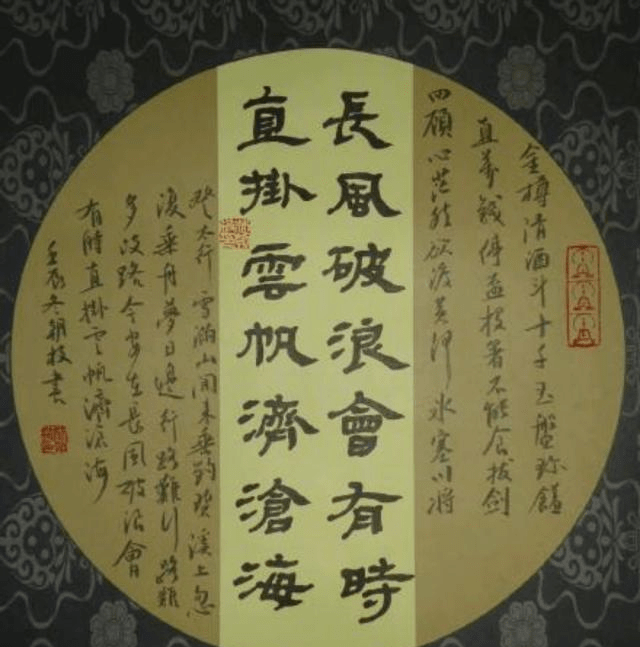 金樽清酒斗十千玉盤珍饈
直萬錢停盃投箸不能食拔劍
四顧心茫然欲渡黃河冰塞川將
長風破浪會有時
直掛雲帆濟滄海
登太行雪滿山閒來垂釣碧溪上忽
復乘舟夢日邊行路難行路難
多歧路今安在長風破浪會
有時直掛云帆濟滄海
壬辰冬書